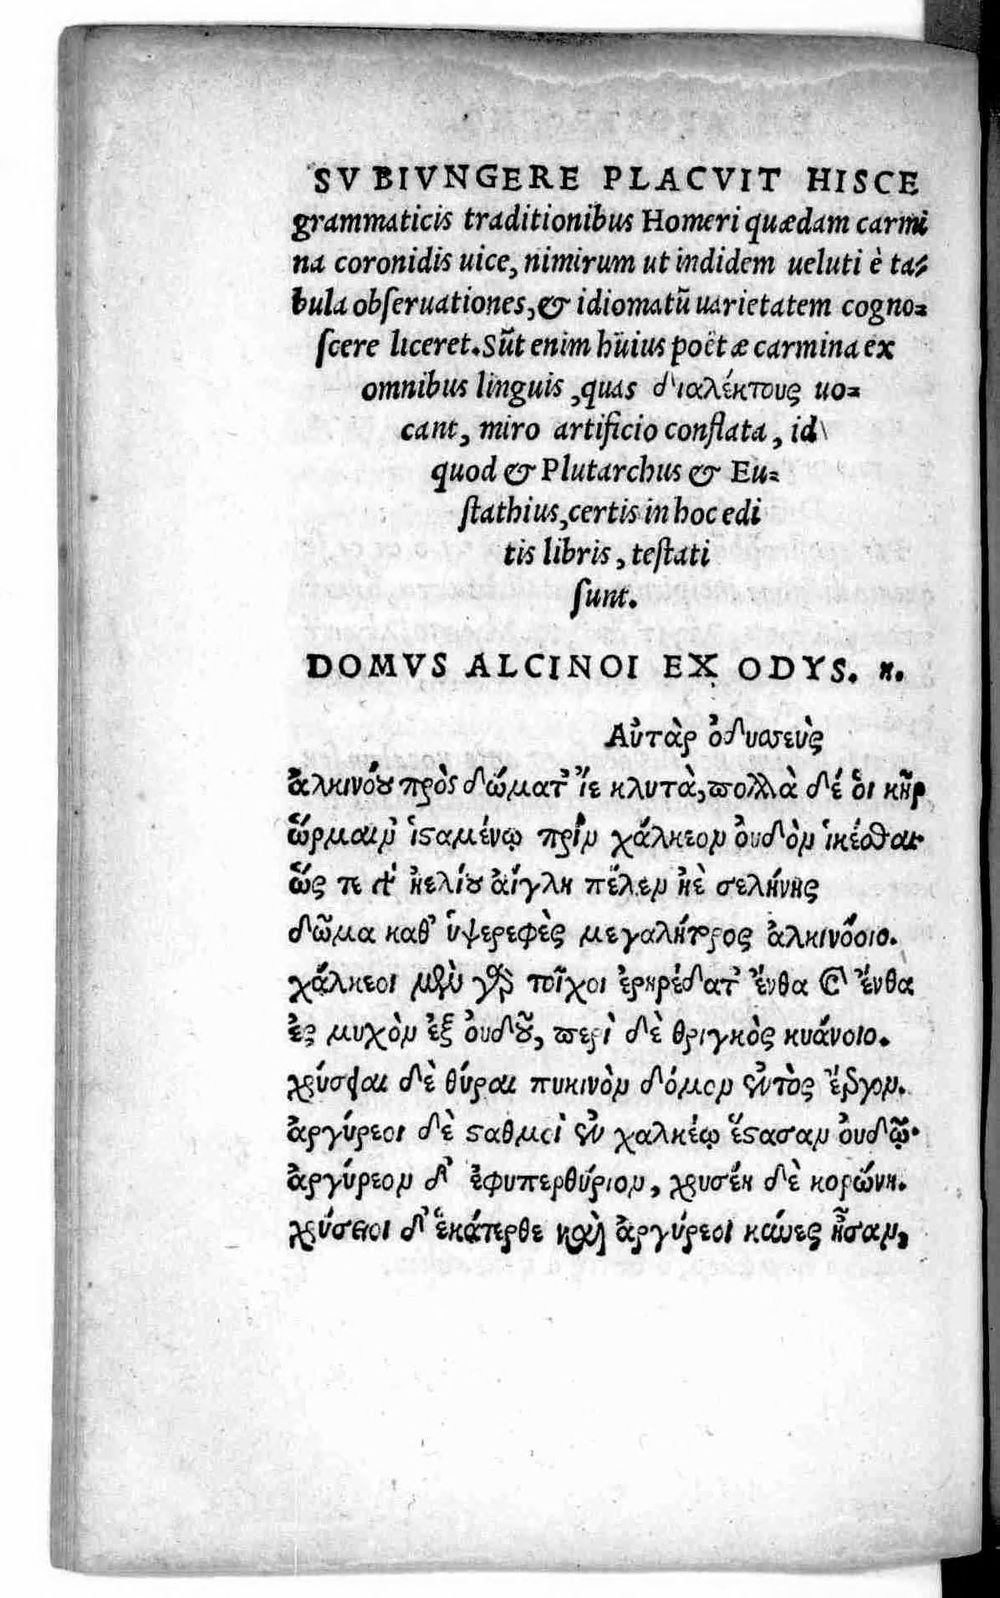 SVBIVNGERE PLACVIT HISCE
grammaticis traditionibus Homeri quædam carmi
na coronidis uice, nimirum ut indidem ueluti è ta⸗
bula obſeruationes, & idiomatũ uarietatem cogno⸗
ſcere liceret. Sũt enim hũius poëtæ carmina ex
omnibus linguis, quas διαλέκτους uo⸗
cant, miro artificio conflata, id
quod & Plutarchus & Eu⸗
ſtathius, certis in hoc edi
tis libris, teſtati
ſunt.
DOMVS ALCINOI EX ODYS. η.
Αὐτὰρ ὀδυσσεὺς
ἀλκινόου πρὸς δώματ' ἴε κλυτὰ, πολλὰ δέ ὁι κῆρ
ὥρμαιν' ἱσταμένῳ πρὶν χάλκεον ὀυδὸν ἱκέσθαι·
ὥς τε γὰρ ἠελίου ἀίγλη πέλεν ἠὲ σελήνης
δῶμα καθ' ὑψερεφὲς μεγαλήτορος ἀλκινόοιο.
χάλκεοι μὲν γὰρ τοῖχοι ἐρηρέδατ' ἔνθα καὶ ἔνθα
ἐς μυχὸν ἐξ ὀυδοῦ, περὶ δὲ θριγκὸς κυάνοιο.
χρύσειαι δὲ θύραι πυκινὸν δόμον ἐντὸς ἔεργον.
ἀργύρεοι δὲ σταθμοὶ ἐν χαλκέῳ ἕστασαν ὀυδῷ·
ἀργύρεον δ' ἐφυπερθύριον, χρυσέη δὲ κορώνη.
χρύσειοι δ' ἑκάτερθε καὶ ἀργύρεοι κύνες ἦσαν,